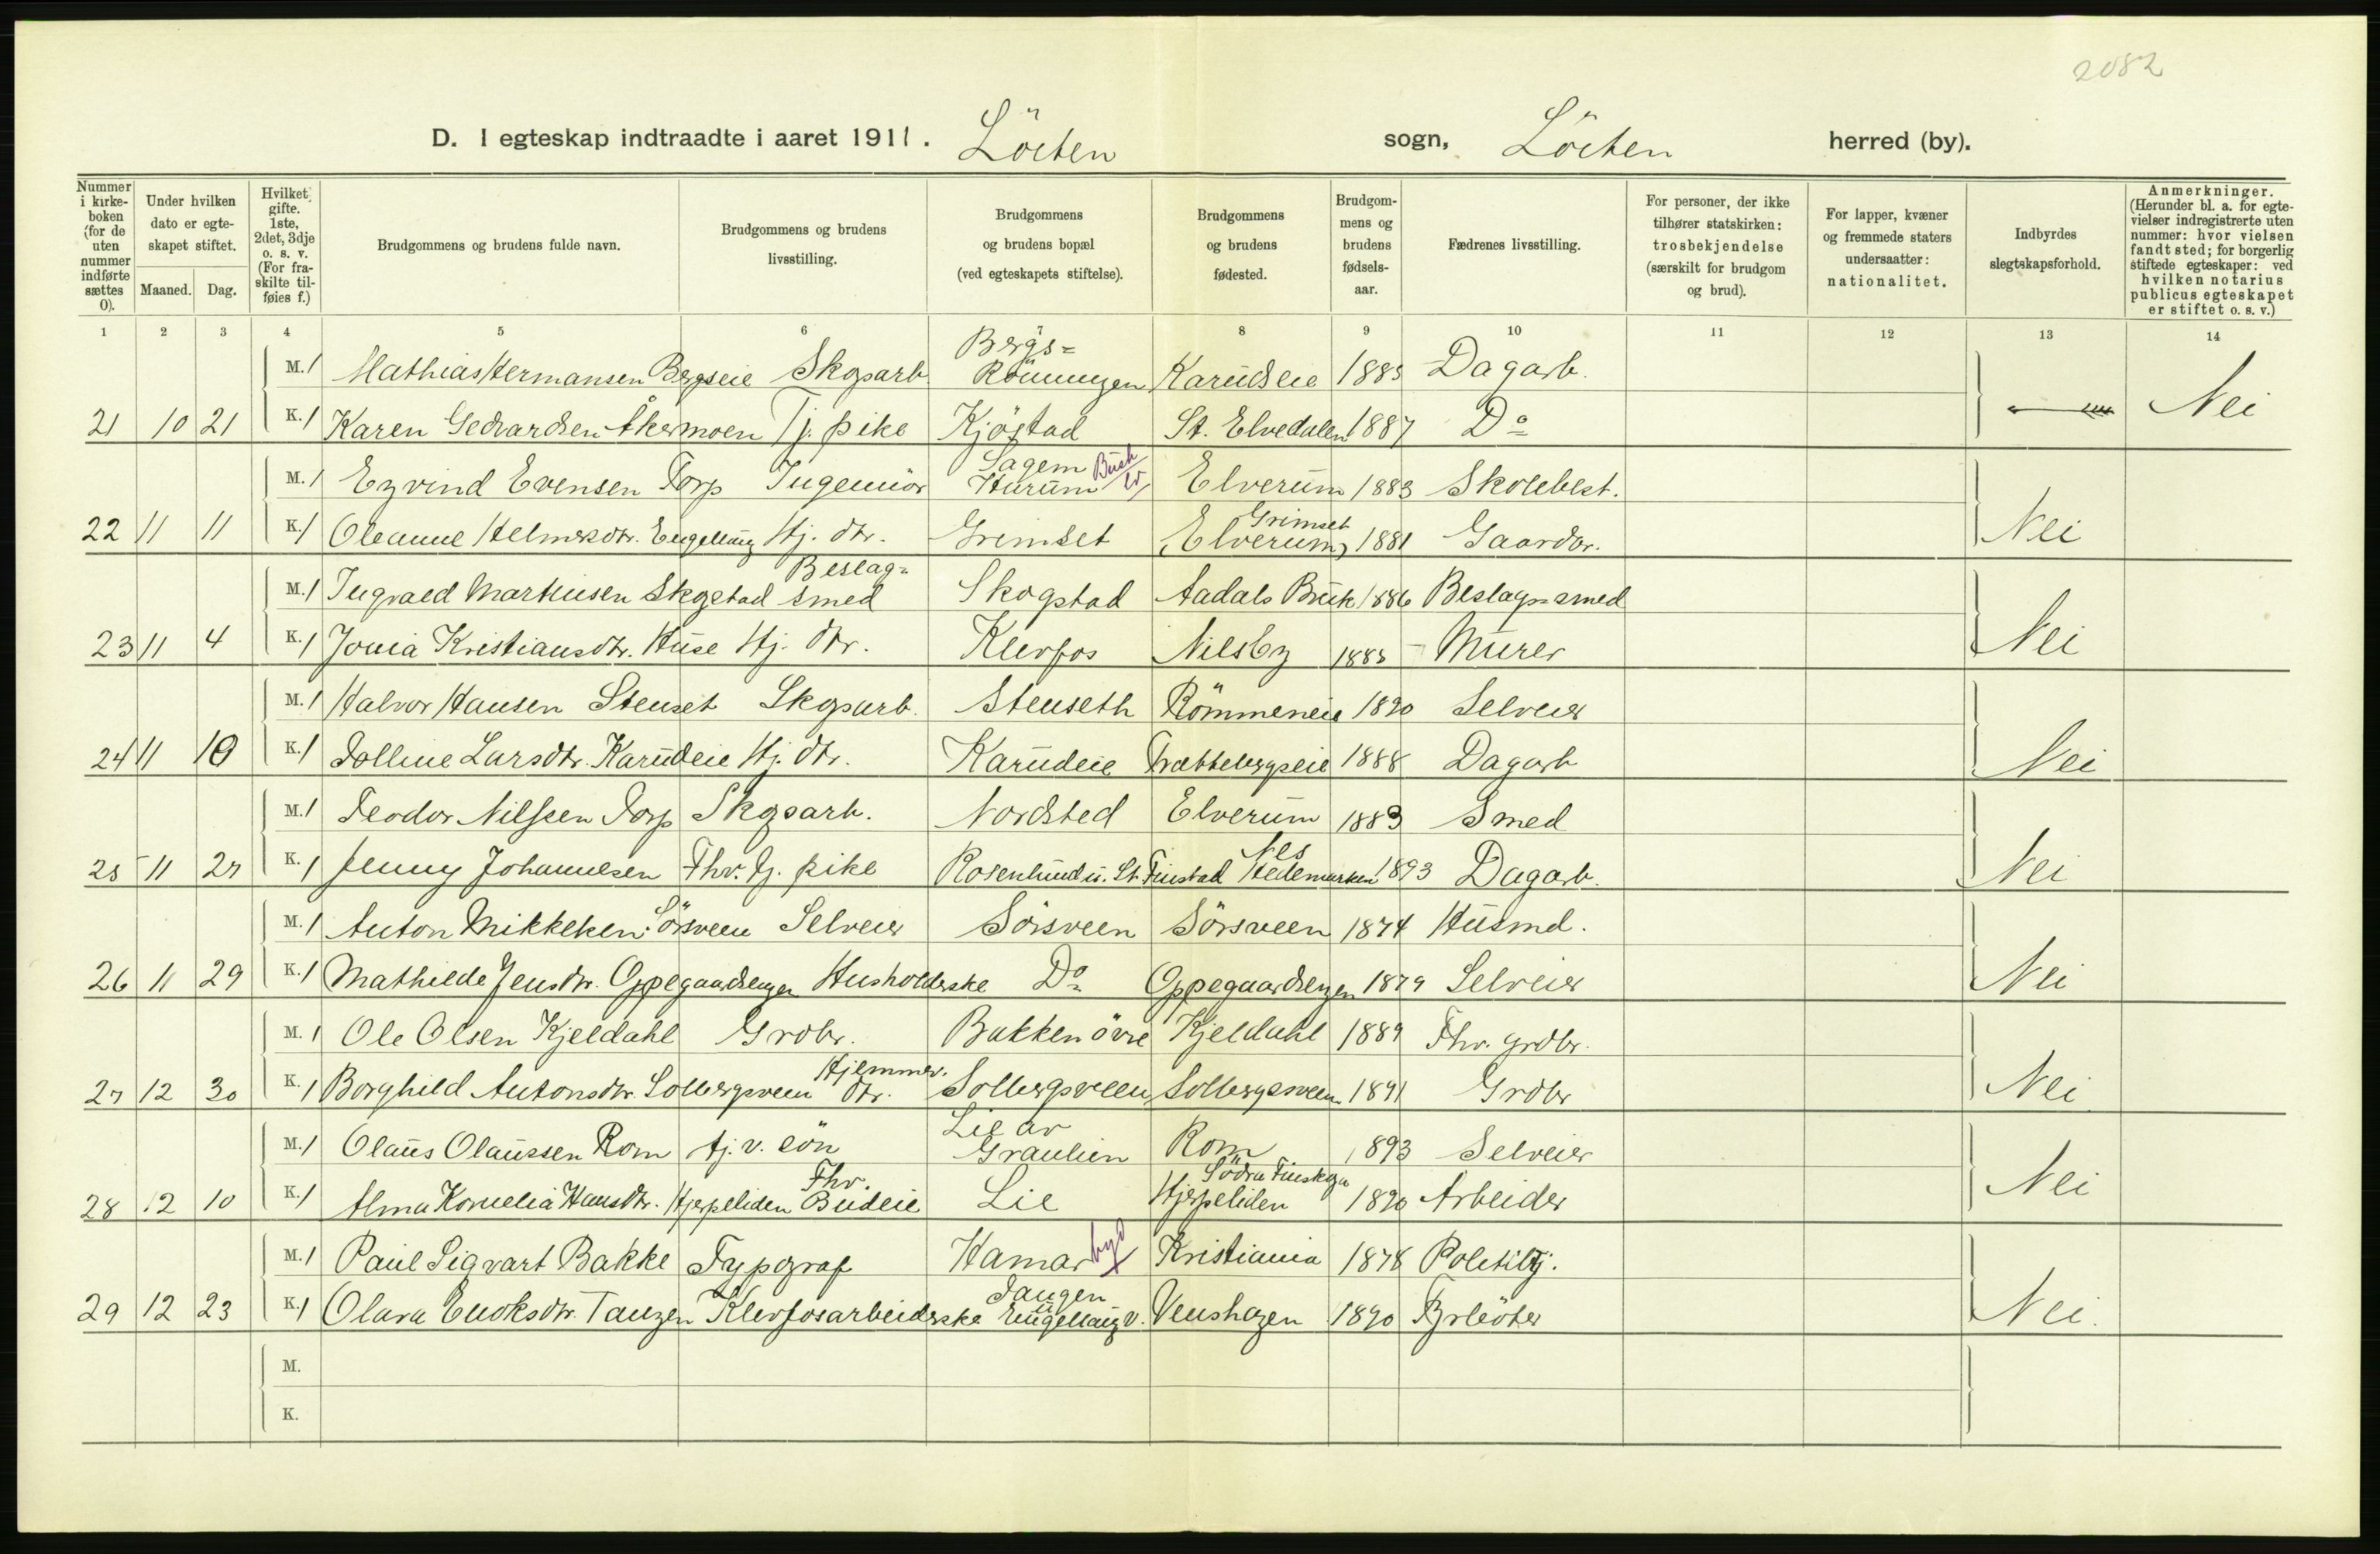 2082
D. I egteskap indtraadte i aaret 1911. Löiten sogn, Löiten herred (by).
Nummer i kirkeboken (for de uten nummer indførte sættes 0).
Under hvilken dato er egteskapet stiftet.
Maaned. Dag.
Hvilket gifte. 1ste, 2det, 3dje o. s. v. (For fraskilte tilføies f.)
Brudgommens og brudens fulde navn.
Brudgommens og brudens livsstilling.
Brudgommens og brudens bopæl (ved egteskapets stiftelse).
Brudgommens og brudens fødested.
Brudgommens og brudens fødselsaar.
Fædrenes livsstilling.
For personer, der ikke tilhører statskirken: trosbekjendelse (særskilt for brudgom og brud).
For lapper, kvæner og fremmede staters undersaatter: nationalitet.
Indbyrdes slegtskapsforhold.
Anmerkninger. (Herunder bl. a. for egtevielser indregistrerte uten nummer: hvor vielsen fandt sted; for borgerlig stiftede egteskaper: ved hvilken notarius publicus egteskapet er stiftet o. s. v.)
1 2 3 4 5 6 7 8 9 10 11 12 13 14
M. 1 Mathias Hermansen Bergseie Skogsarb. Bergs= Rönningen Karudseie 1885 Dagarb.
21 10 21 K. 1 Karen Gedvardsen Åkermoen Tj. pike Kjöstad St. Elvedalen 1887 Do Nei
M. 1 Eyvind Evensen Torp Ingeniör Sagem Hurum Busk Elverum 1883 Skolebest.
22 11 11 K. 1 Oleanne Helmersdtr. Engelaug Hj. dtr. Grimset Grimset Elverum 1881 Gaardbr. Nei
M. 1 Ingvald Martinsen Skogstad Beslag= smed Skogstad Aadals Bruk 1886 Beslagssmed
23 11 4 K. 1 Jonia Kristiansdtr. Huse Hj. dtr. Klevfos Nilsby 1885 Murer Nei
M. 1 Halvor Hansen Stenset Skogsarb. Stenseth Römmeneie 1890 Selveier
24 11 10 K. 1 Polline Larsdtr. Karudeie Hj. dtr. Karudeie Prættebergseie 1888 Dagarb Nei
M. 1 Teodor Nilssen Torp Skogsarb. Nordsted Elverum 1883 Smed
25 11 27 K. 1 Jenny Johannesen Fhv. Tj. pike Rosenlund u. St. Finstad Nes Hedemarken 1893 Dagarb. Nei
M. 1 Anton Mikkelsen Sörsveen Selveier Sörsveen Sörsveen 1874 Husmd.
26 11 29 K. 1 Mathilde Jensdtr. Oppegaardsengen Husholderske Do Oppegaardsengen 1879 Selveier Nei
M. 1 Ole Olsen Kjeldahl Grdbr. Bakken övre Kjeldahl 1889 Fhv. grdbr.
27 12 30 K. 1 Borghild Antonsdtr. Solbergsveen Hjemmev. dtr. Solbergsveen Solbergsveen 1891 Grdbr Nei
M. 1 Olaus Olaussen Rom Hj. v. sön Lie av Graulien Rom 1893 Selveier
28 12 10 K. 1 Alma Kornelia Hansdtr. Hjerpeliden Fhv. Budeie Lie Södra Finskoga Hjerpeliden 1890 Arbeider Nei
M. 1 Paul Sigvart Bakke Typograf Hamar by Kristiania 1878 Politibtj.
29 12 23 K. 1 Olava Enoksdtr. Tangen Klevfosarbeiderske Tangen u Engelaug v. Venshagen 1890 Fyrbøter Nei.
M.
K.